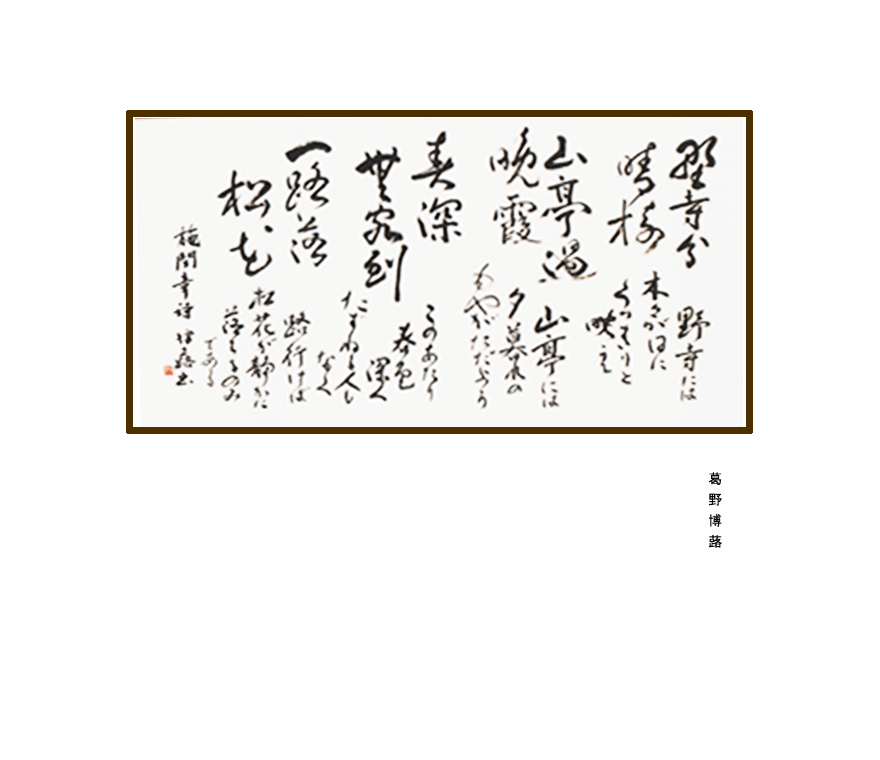 野寺分
野寺には
晴樹
木々が日に
くっきりと
映え
山亭過
山亭には
晩霞
夕暮れの
もやがただよう
春深
このあたり
春色
深く
無客到
たずねる人も
なく
一路落
路行けば
松花
松花が静かに
落ちるのみ
である
施閏章詩 博蕗書
葛野博蕗